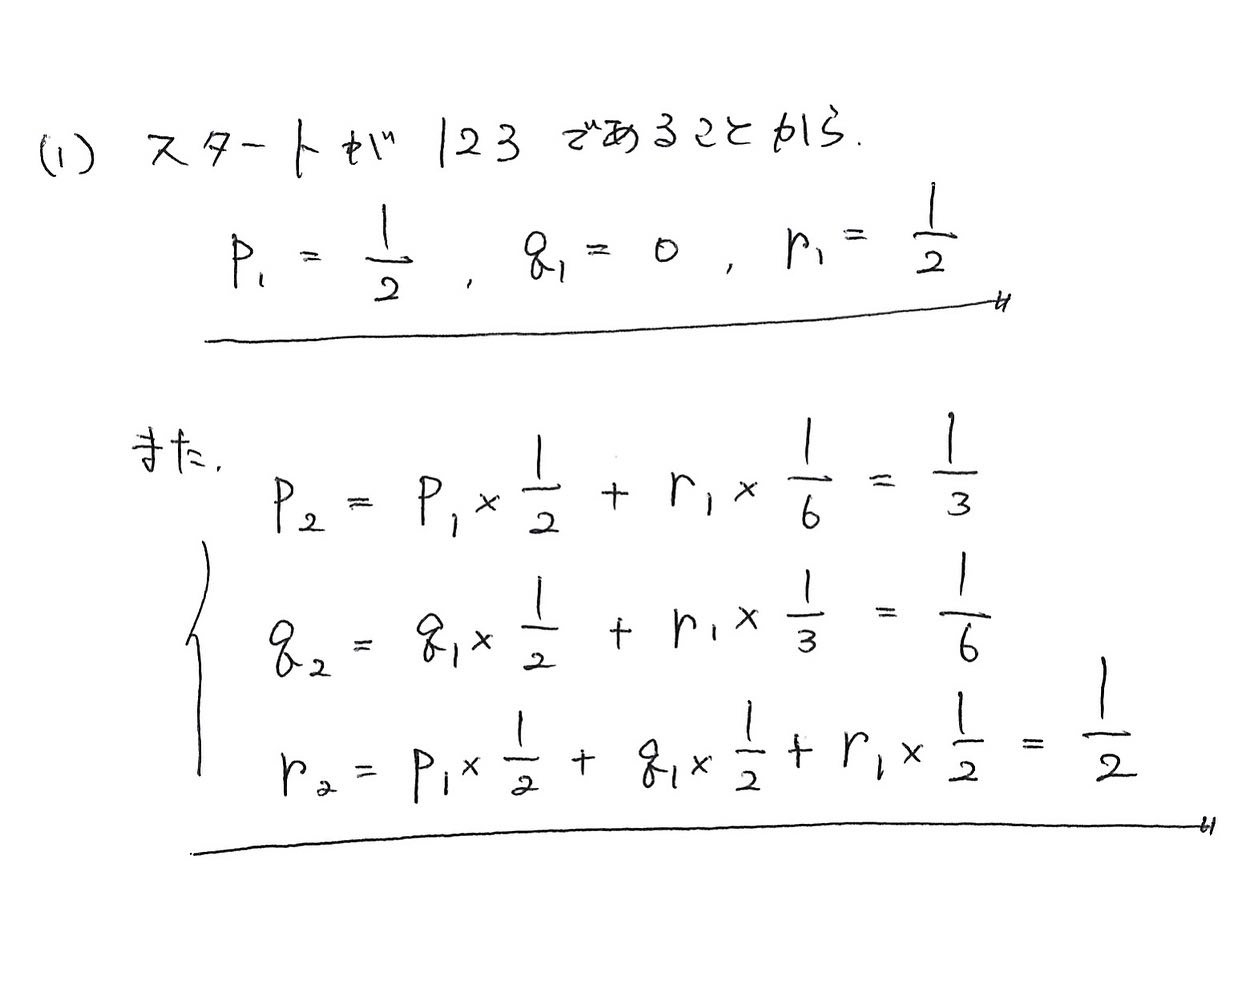 (1) スタートが 123 であることから.
p₁ = 1/2 , q₁ = 0 , r₁ = 1/2
また.
p₂ = p₁ × 1/2 + r₁ × 1/6 = 1/3
q₂ = q₁ × 1/2 + r₁ × 1/3 = 1/6
r₂ = p₁ × 1/2 + q₁ × 1/2 + r₁ × 1/2 = 1/2